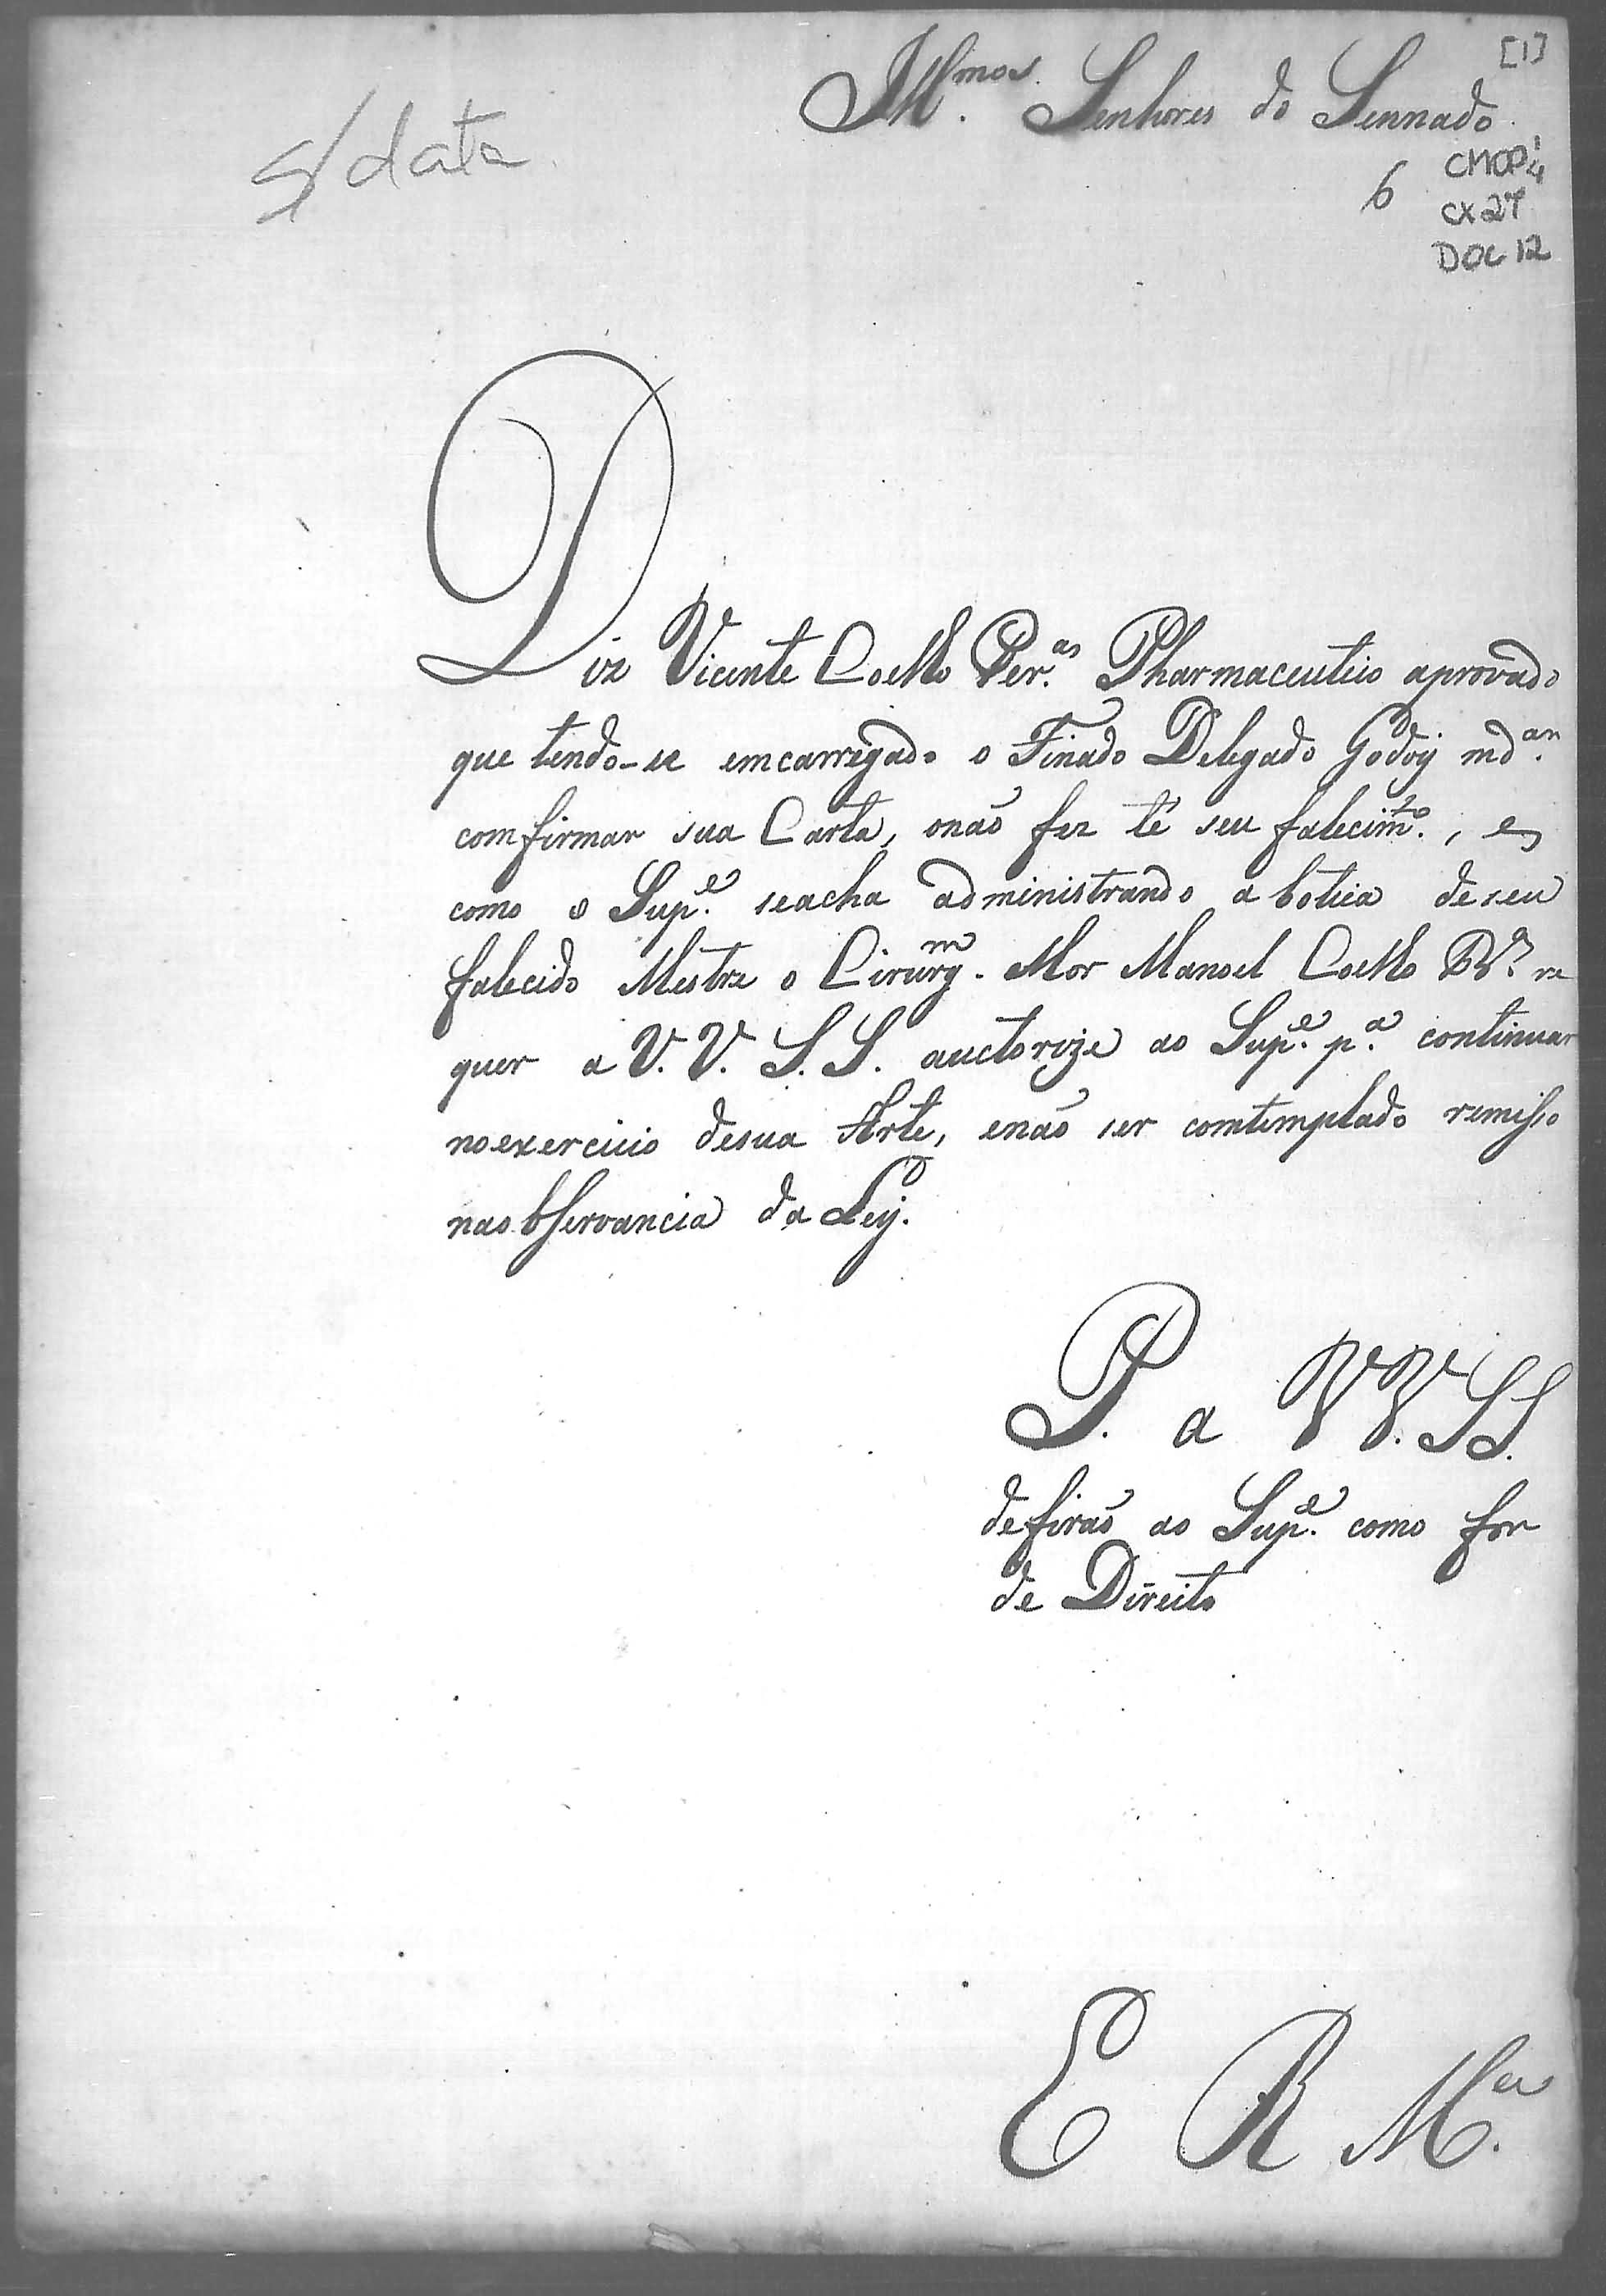 [1]
Illmos. Senhores do Sennado.
s/data
6
CMOP
CX 27
DOC 12
Diz Vicente Coelho Per.as Pharmaceutico aprovado
que tendo-se emcarregado o Finado Delegado Godoy md.ar
comfirmar sua Carta, onaõ fez té seu falecimto., e
como o Supe. seacha administrando a botica deseu
falecido Mestre o Cirurgm. Mor Manoel Coelho re
quer a V. V. S. S. auctorize ao Supe. pa. continuar
noexercicio desua Arte, enaõ ser comtemplado remisso
naobservancia da Ley.
P. a V V. S S.
defiraõ ao Supe. como for
de Direito
E R Mce.